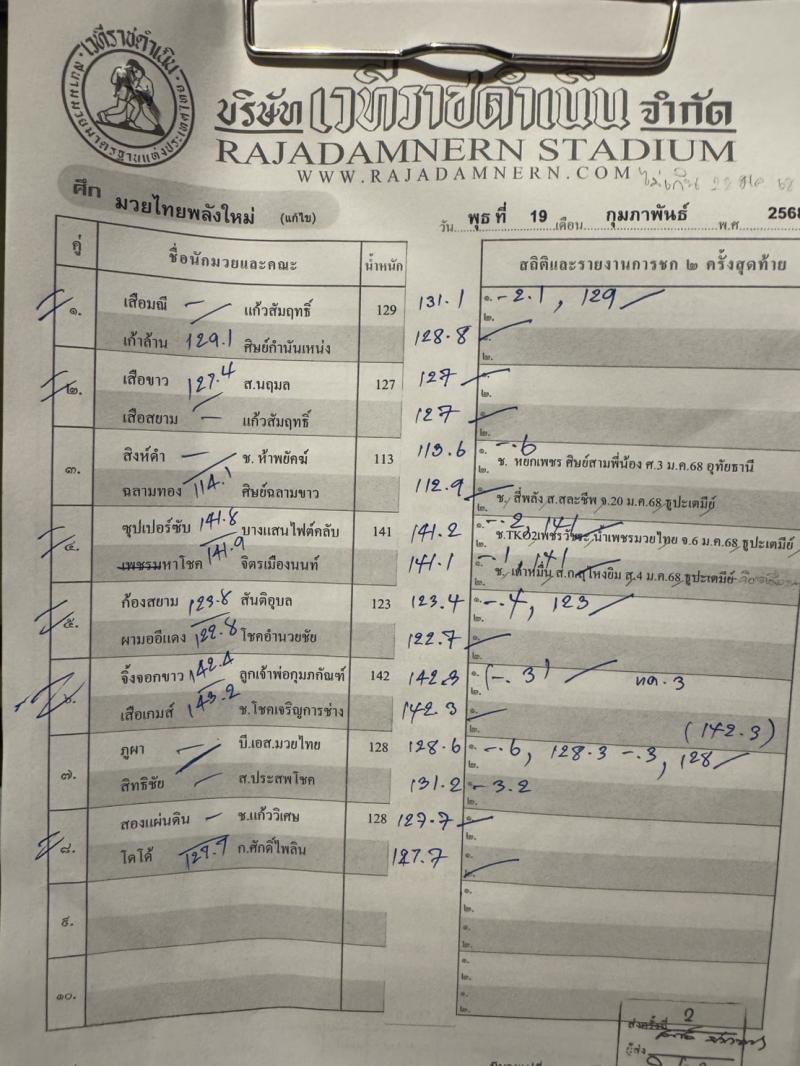 เวทีราชดำเนิน
สนามมวยมาตรฐานแห่งประเทศไทย
บริษัท เวทีราชดำเนิน จำกัด
RAJADAMNERN STADIUM
WWW.RAJADAMNERN.COM
ศึก มวยไทยพลังใหม่ (แก้ไข) วัน พุธ ที่ 19 เดือน กุมภาพันธ์ พ.ศ 2568
คู่ ชื่อนักมวยและคณะ น้ำหนัก สถิติและรายงานการชก ๒ ครั้งสุดท้าย
๑. เสือมณี - แก้วสัมฤทธิ์ 129 131.1 ๑. -2.1, 129
๒.
เก้าล้าน 129.1 ศิษย์กำนันเหน่ง 128.8 ๑.
๒.
๒. เสือขาว 127.4 ส.นฤมล 127 127 ๑.
๒.
เสือสยาม - แก้วสัมฤทธิ์ 127 ๑.
๒.
๓. สิงห์ดำ - ช. ห้าพยัคฆ์ 113 113.6 ๑. -.6
๒. ช. หยกเพชร ศิษย์สามพี่น้อง ศ.3 ม.ค.68 อุทัยธานี
ฉลามทอง 114.1 ศิษย์ฉลามขาว 112.9 ๑.
๒. ช. สี่พลัง ส.สละชีพ จ.20 ม.ค.68 ธูปะเตมีย์
๔. ซุปเปอร์ซับ 141.8 บางแสนไฟต์คลับ 141 141.2 ๑. -.2, 141
ช.TKO2เพชรวิ น้ำเพชรมวยไทย จ.6 ม.ค.68 ธูปะเตมีย์
เพชรมหาโชค 141.9 จิตรเมืองนนท์ 141.1 ๑. -.1, 141
๒. ช. เต้าหมื่น ส.ก. โหงยิม ส.4 ม.ค.68 ธูปะเตมีย์
๕. ก้องสยาม 123.8 สันติอุบล 123 123.4 ๑. -.4, 123
๒.
ผามออีแดง 122.8 โชคอำนวยชัย 122.7 ๑.
๒.
๖. จิ้งจอกขาว 142.4 ลูกเจ้าพ่อกุมภกัณฑ์ 142 142.3 ๑. (-.3) ทด.3
๒.
เสือเกมส์ 143.2 ช.โชคเจริญการช่าง 142.3 ๑. (142.3)
๒.
๗. ภูผา - บี.เอส.มวยไทย 128 128.6 ๑. -.6, 128.3 -.3, 128
๒.
สิทธิชัย - ส.ประสพโชค 131.2 ๑. -3.2
๒.
๘. สองแผ่นดิน - ช.แก้ววิเศษ 128 127.7 ๑.
๒.
โดโด้ 127.9 ก.ศักดิ์ไพลิน 127.7 ๑.
๒.
๙. ๑.
๒.
๑.
๒.
๑๐. ๑.
๒.
๑.
๒.
ส่งครั้งที่ 2
ผู้ส่ง